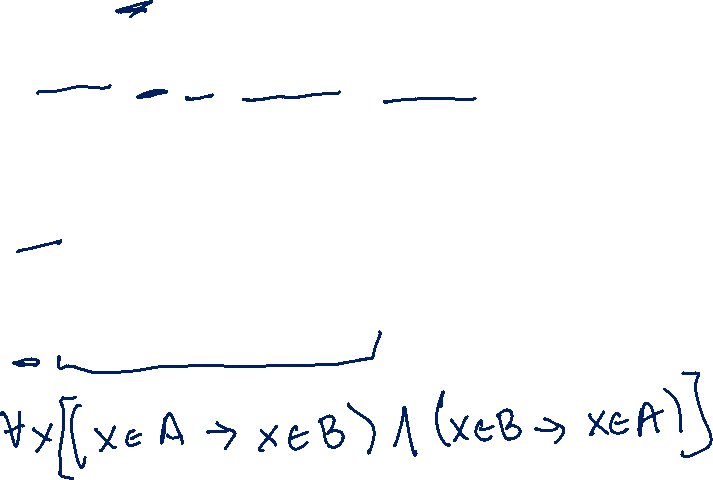 ∀x[(x∈A → x∈B) ∧ (x∈B → x∈A)]